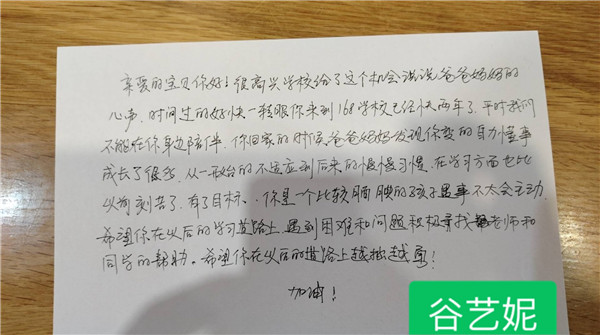 亲爱的宝贝你好！很高兴学校给了这个机会说说爸爸妈妈的
心声，时间过的好快一转眼你来到168学校已经快两年了，平时我们
不能在你身边陪伴，你回家的时候爸爸妈妈发现你变的自力懂事
成长了很多，从一开始的不适应到后来的慢慢习惯，在学习方面也比
以前刻苦了，有了目标，你是一个比较腼腆的孩子遇事不太会主动，
希望你在以后的学习道路上，遇到困难和问题积极寻找老师和
同学的帮助。希望你在以后的道路上越挫越勇！
加油！
谷艺妮